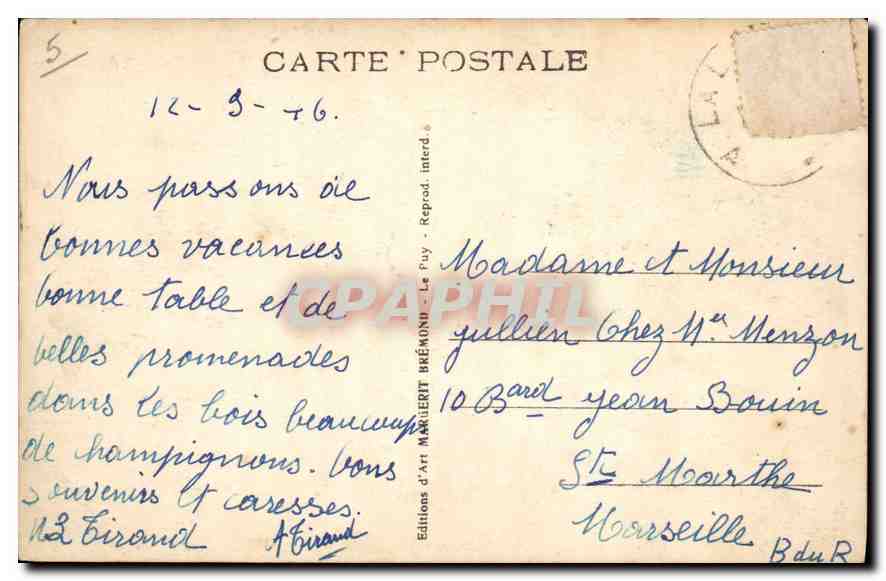 5
CARTE POSTALE
12-9-46.
Nous passons de
bonnes vacances
bonne table et de
belles promenades
dans les bois beaucoup
de champignons. bons
souvenirs et caresses.
Tirand A Tirand
Editions d'Art MARGERIT BRÉMOND - Le Puy - Reprod. interd.
LAL
A
Madame et Monsieur
Jullien Chez Mer Menzon
10 Bard Jean Bouin
Ste Marthe
Marseille
B du R
CPAPHIL